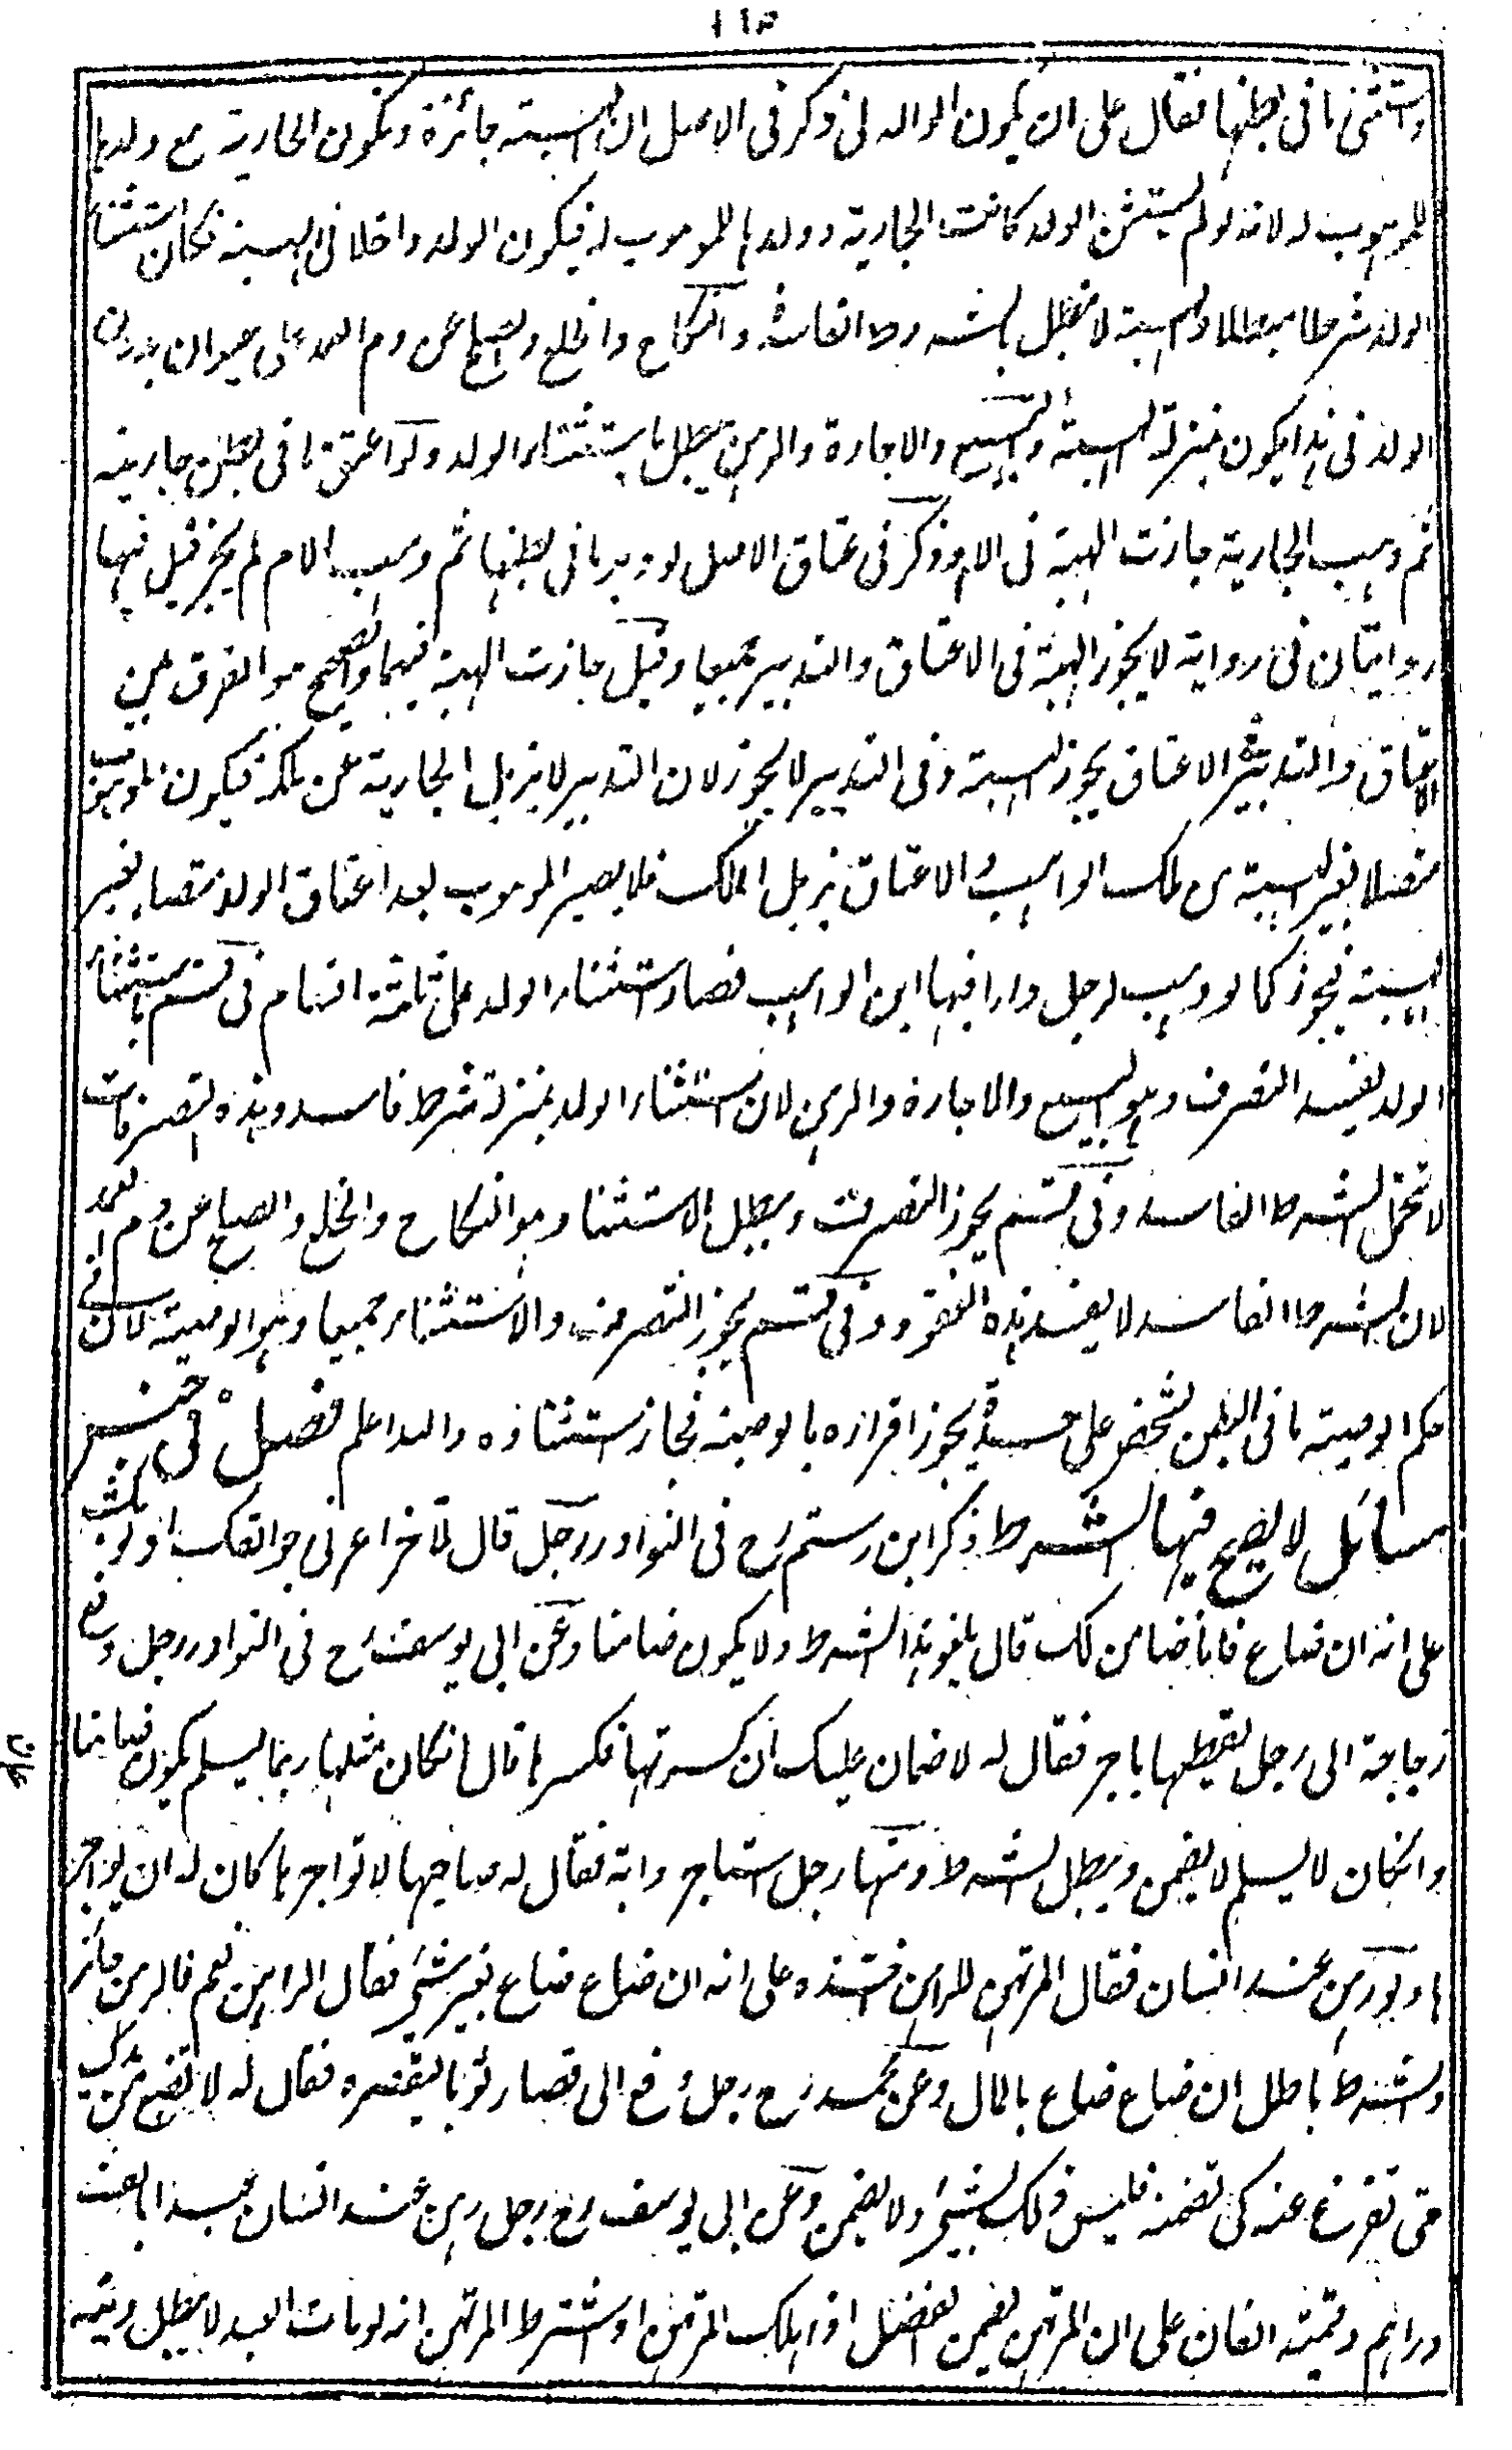 ١٦٣
واستثنى ما فى بطنها فقال على ان يكون الوالد لى ذكر فى الاصل ان الهبة جائزة وتكون الجارية مع ولدها
للموهوب له لانه لو لم يستثن الولد كانت الجارية وولدها للموهوب له فيكون الولد داخلا فى الهبة فكان استثناء
الولد شرطا مبطلا والهبة لا تبطل بالشروط الفاسدة والنكاح والخلع والصلح عن دم العمد على حيوان بدون
الولد فى هذا يكون بمنزلة الهبة والبيع والاجارة والرهن يبطل باستثناء الولد ولو اعتق ما فى بطن جاريته
ثم وهب الجارية جازت الهبة فى الام وذكر فى عتاق الاصل لو دبر ما فى بطنها ثم وهب الام لم يجز قيل فيها
روايتان فى رواية لا يجوز الهبة فى الاعتاق والتدبير جميعا وقيل جازت الهبة فيهما والصحيح هو الفرق بين
الاعتاق والتدبير فى الاعتاق يجوز الهبة وفى التدبير لا يجوز لان التدبير لا يزيل الجارية عن ملكه فيكون الموهوب
متصلا بغير الهبة من ملك الواهب والاعتاق يزيل الملك فلا يصير الموهوب بعد اعتاق الولد متصلا بغير
الهبة فيجوز كما لو وهب لرجل دارا فيها ابن الواهب فصار استثناء الولد على ثلثة اقسام فى قسم باستثناء
الولد يفسد التصرف وهو البيع والاجارة والرهن لان استثناء الولد بمنزلة شرط فاسد وهذه التصرفات
لا تحتمل الشرط الفاسد وفى قسم يجوز التصرف ويبطل الاستثناء وهو النكاح والخلع والصلح عن دم العمد
لان الشرط الفاسد لا يفسد هذه العقود وفى قسم يجوز التصرف والاستثناء جميعا وهو الوصية لان فى
حكم الوصية ما فى البطن كشخص على حدة يجوز افراده بالوصية فجاز استثناؤه والله اعلم فصل فى جنس
مسائل لا يصح فيها الشرط ذكر ابن رستم رح فى النوادر رجل قال لآخر اعرنى جوالقك او ثوبك
على انه ان ضاع فانا ضامن لك قال يلغو هذا الشرط ولا يكون ضامنا وعن ابى يوسف رح فى النوادر رجل دفع
زجاجة الى رجل يقطعها باجر فقال له لا ضمان عليك ان كسرتها فكسرها قال ان كان مثلها ربما يسلم يكون ضامنا
وان كان لا يسلم لا يضمن ويبطل الشرط ومنها رجل استاجر دابة فقال له صاحبها لا تواجرها كان له ان يواجر
ها ولو رهن عند انسان فقال المرتهن للراهن خذه على انه ان ضاع ضاع بغير شئ فقال الراهن نعم فالرهن جائز
والشرط باطل ان ضاع ضاع بالمال وعن محمد رح رجل دفع الى قصار ثوبا ليقصره فقال له لا تضع من يدك
حتى تفرغ عنه كى تضمنه فليس ذلك بشئ ولا يضمن وعن ابى يوسف رح رجل رهن عند انسان عبدا بالف
دراهم وقيمته الفان على ان المرتهن يضمن الفضل اذا هلك الرهن او اشترط المرتهن انه لو مات العبد لا يبطل دينه